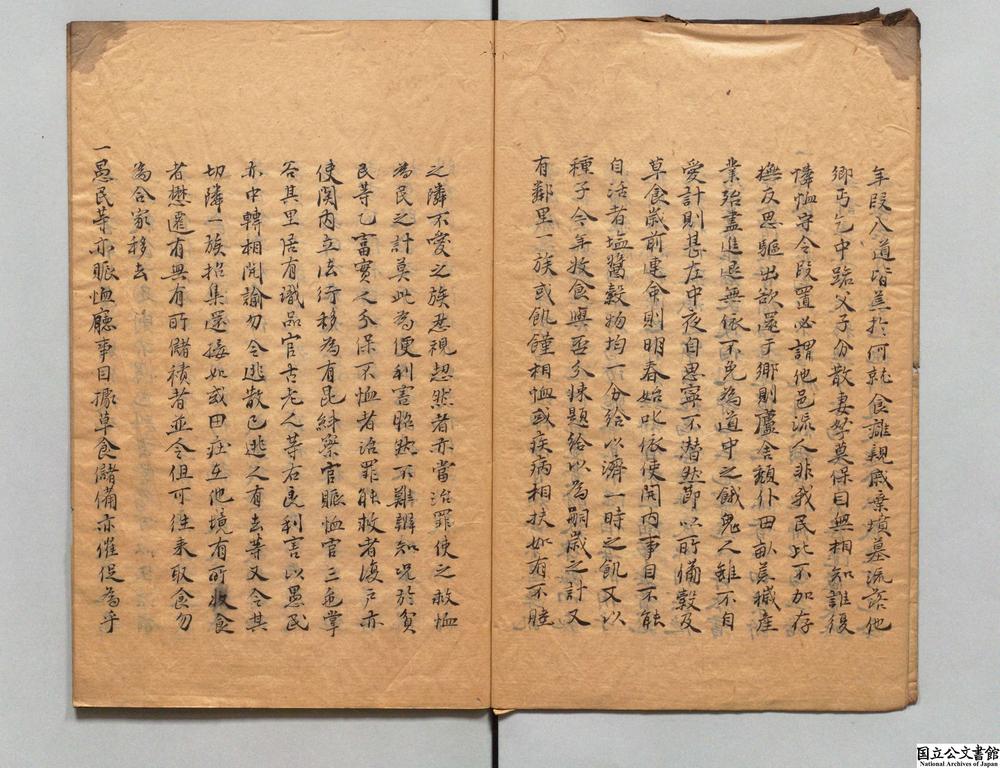 年段入道皆至於何就食離親戚棄墳墓流離他
鄉丐乞中路父子分散妻孥莫保目無相知誰復
憐恤守令段置必謂他邑流人非我民比不加存
撫反思驅出欲還于鄉則廬舍頹仆田畝荒穢産
業殆盡進退無依不免為道中之餓鬼人雖不自
愛計則甚左中夜自思寧不潜然節以所備穀及
草食歲前連命則明春始此依使関内事目不能
自活者塩醬穀物均一分給以濟一時之飢又以
種子今年收食與否分揀題給以為嗣歲之計又
有鄰里一族或飢饉相恤或疾病相扶如有不睦
之隣不愛之族忍視恝然者亦當治罪使之救恤
為民之計莫此為便利害昭然不難辨知况於貧
民等乙富實之人保不恤者治罪能救者復戸亦
使関内立法行移為有昆糾察官賑恤官三色掌
各其里居有識品官古老人等右良利害以愚民
亦中轉相開諭勿令逃散已逃人有去等又令其
切隣一族招集還接如或田庄在他境有所收食
者懋遷有無有所儲積者並令但可往来取食勿
為合家移去
一愚民等亦賑恤廳事目據草食儲備亦催促為乎